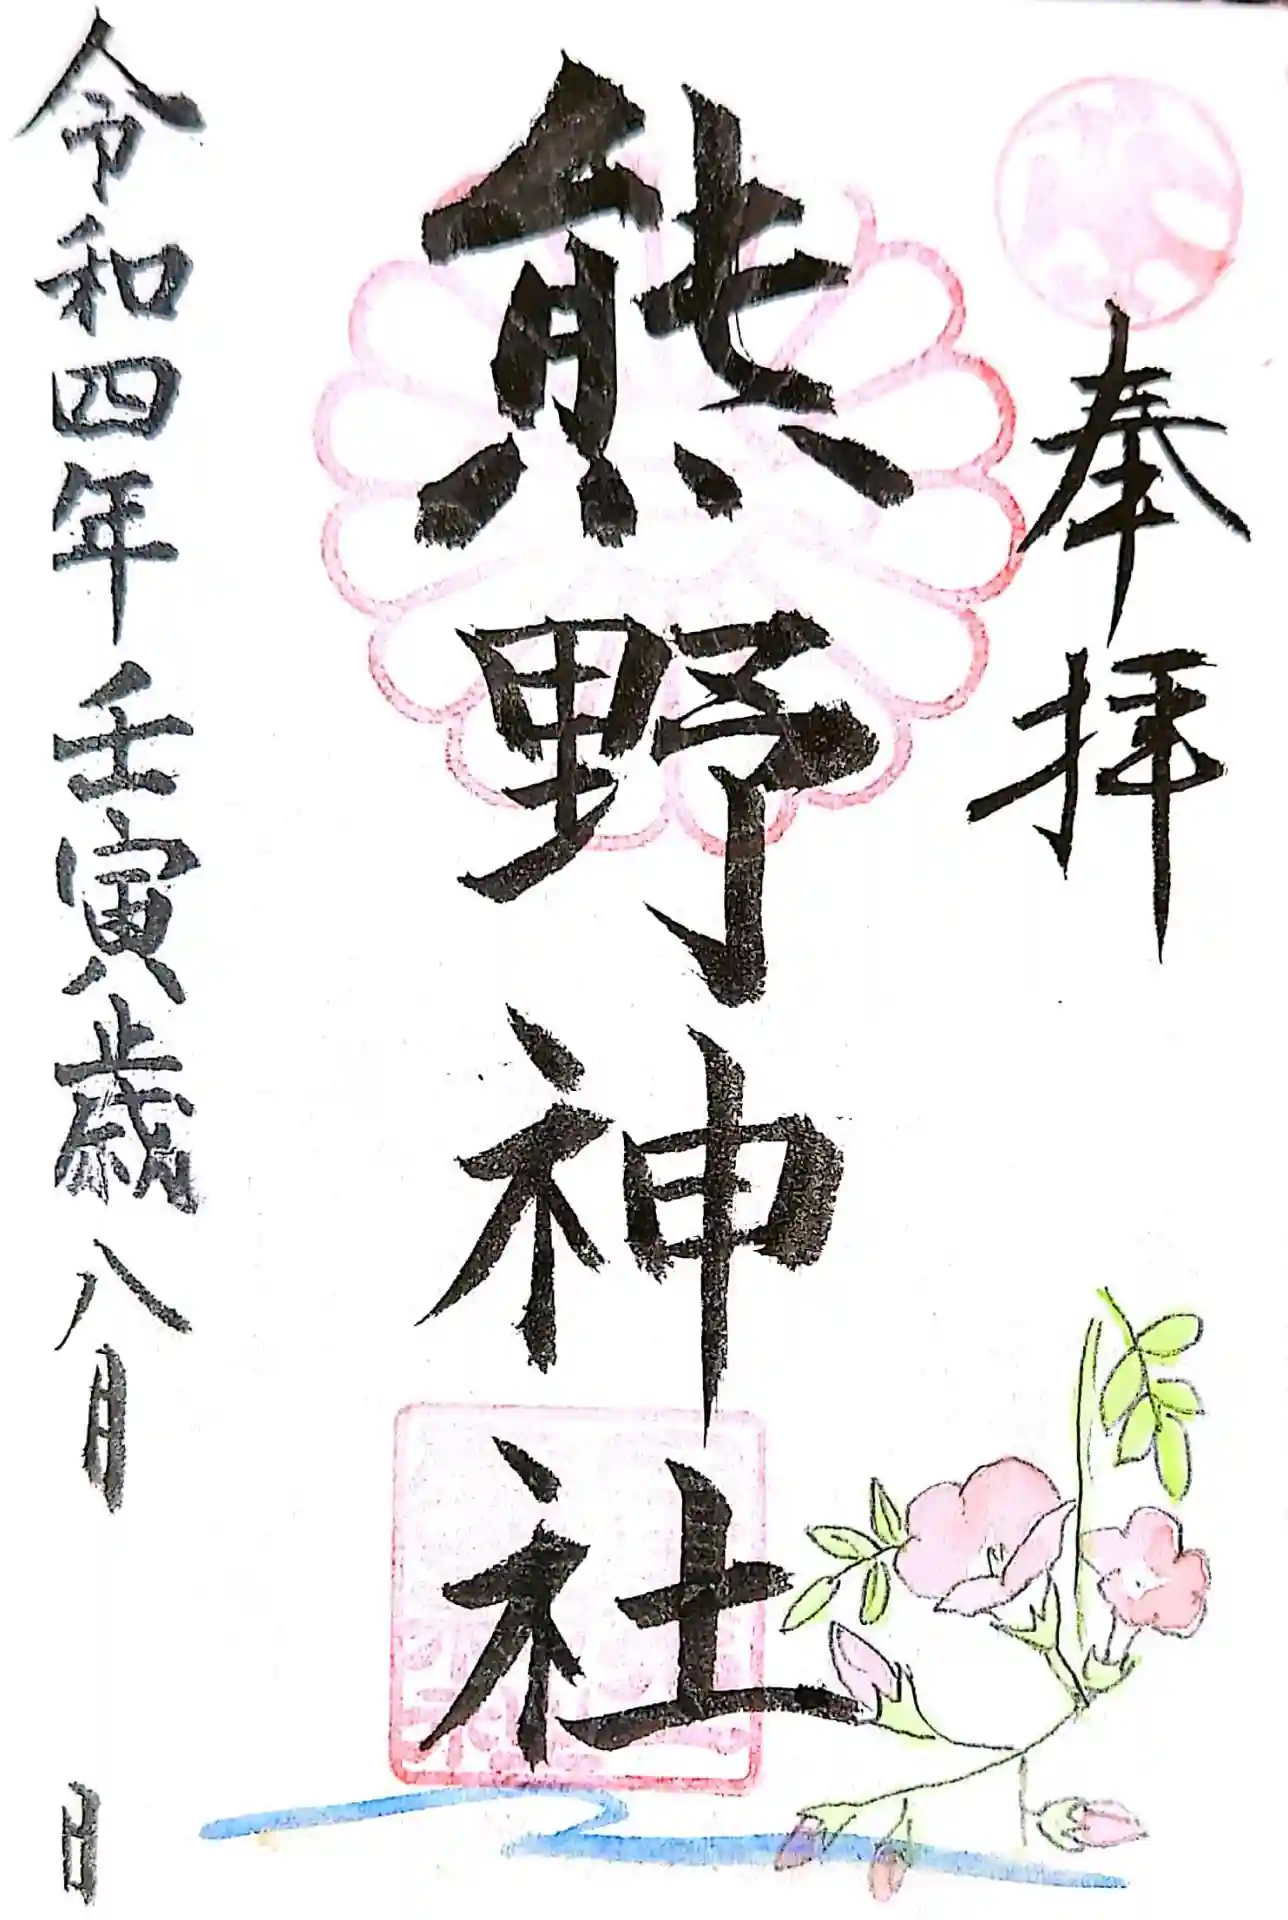 奉拝
熊野神社
令和四年壬寅歳八月 日